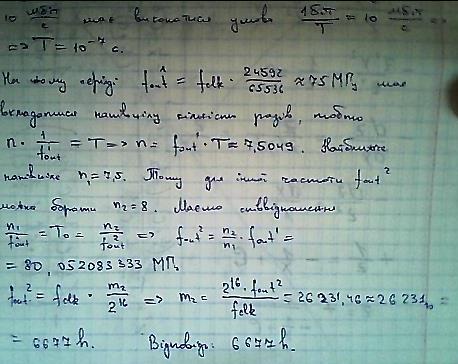 10 Мбіт/с має виконатися умова 1біт/T = 10 Мбіт/с =>
=> T = 10⁻⁷ с.
На цьому періоді f_out¹ = f_clk · 24592/65536 ≈ 75 МГц має
вкладатися напівцілу кількість разів, тобто
n · 1/f_out¹ = T => n = f_out¹ · T ≈ 7,5049. Найближче
напівціле n₁ = 7,5. Тому для іншої частоти f_out²
можна брати n₂ = 8. Маємо співвідношення
n₁/f_out¹ = T₀ = n₂/f_out² => f_out² = n₂/n₁ · f_out¹ =
= 80,052083333 МГц
f_out² = f_clk · m₂/2¹⁶ => m₂ = 2¹⁶ · f_out²/f_clk = 26231,46 ≈ 26231₁₀ =
= 6677h. Відповідь: 6677h.